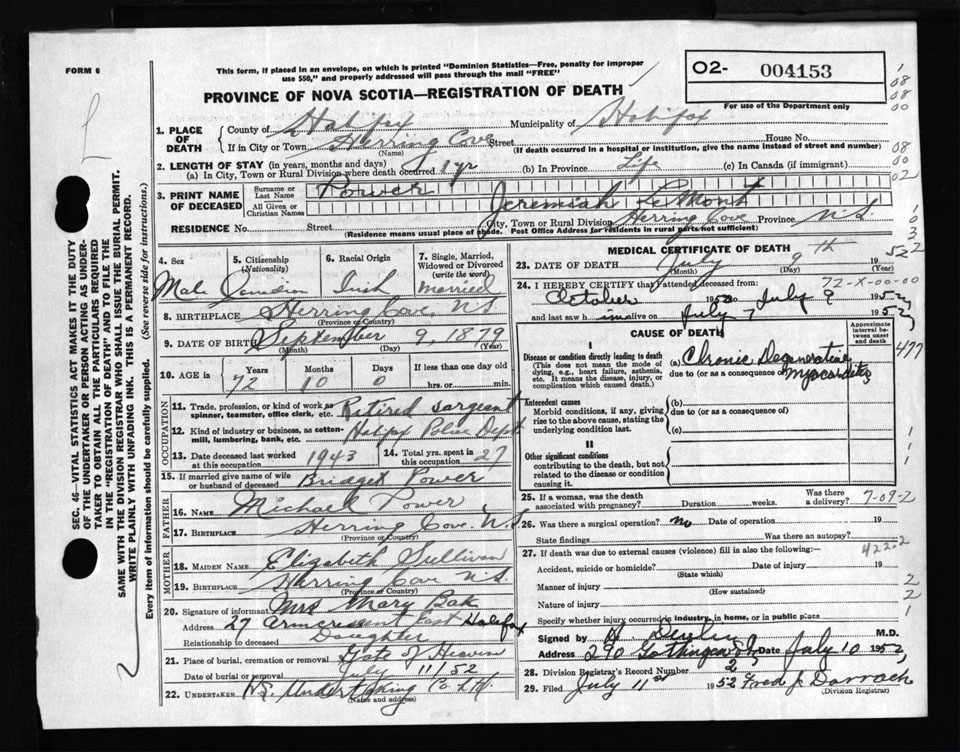 FORM 6
This form, if placed in an envelope, on which is printed "Dominion Statistics—Free, penalty for improper
use $50," and properly addressed will pass through the mail "FREE"
O2- 004153
For use of the Department only
PROVINCE OF NOVA SCOTIA—REGISTRATION OF DEATH
1. PLACE OF DEATH
County of Halifax Municipality of Halifax
If in City or Town Herring Cove Street House No.
(Name) (If death occurred in a hospital or institution, give the name instead of street and number)
2. LENGTH OF STAY (in years, months and days)
(a) In City, Town or Rural Division where death occurred 1 yr (b) In Province Life (c) In Canada (if immigrant)
3. PRINT NAME OF DECEASED
Surname or Last Name Power
All Given or Christian Names Jeremiah LeMont
RESIDENCE No. Street City, Town or Rural Division Herring Cove Province N.S.
(Residence means usual place of abode. Post Office Address for residents in rural parts not sufficient)
4. Sex Male
5. Citizenship (Nationality) Canadian
6. Racial Origin Irish
7. Single, Married, Widowed or Divorced (write the word) married
8. BIRTHPLACE Herring Cove, N.S.
(Province or Country)
9. DATE OF BIRTH September 9, 1879
(Month) (Day) (Year)
10. AGE in Years Months Days If less than one day
72 10 0 hrs. or min.
OCCUPATION
11. Trade, profession, or kind of work as spinner, teamster, office clerk, etc. Retired Sargeant
12. Kind of industry or business, as cotton-mill, lumbering, bank, etc. Halifax Police Dept
13. Date deceased last worked at this occupation 1943
14. Total yrs. spent in this occupation 27
15. If married give name of wife or husband of deceased Bridget Power
FATHER
16. Name Michael Power
17. Birthplace Herring Cove N.S.
(Province or Country)
MOTHER
18. MAIDEN NAME Elizabeth Sullivan
19. BIRTHPLACE Herring Cove N.S.
(Province or Country)
20. Signature of informant Mrs Mary
Address 27 Armcrescent East Halifax
Relationship to deceased Daughter
21. Place of burial, cremation or removal Gate of Heaven
Date of burial or removal July 11/52
22. UNDERTAKER N.S. Undertaking Co. Ltd.
(Name and address)
MEDICAL CERTIFICATE OF DEATH
23. DATE OF DEATH July 9th 1952
(Month) (Day) (Year)
72-X-00-00
24. I HEREBY CERTIFY that I attended deceased from:
October 1950 July 1952
and last saw him alive on July 7 1952
CAUSE OF DEATH
Approximate interval between onset and death
I
Disease or condition directly leading to death
(This does not mean the mode of dying, e.g., heart failure, asthenia, etc. It means the disease, injury, or complication which caused death.)
(a) Chronic Degenerative
due to (or as a consequence of) myocarditis
477
Antecedent causes
Morbid conditions, if any, giving rise to the above cause, stating the underlying condition last.
(b)
due to (or as a consequence of)
(c)
II
Other significant conditions
contributing to the death, but not related to the disease or condition causing it
25. If a woman, was the death associated with pregnancy? Duration weeks. Was there a delivery?
7-09-2
26. Was there surgical operation? no Date of operation 19
State findings Was there an autopsy?
27. If death was due to external causes (violence) fill in also the following:—
422.2
Accident, suicide or homicide? Date of injury 19
(State which)
Manner of injury
(How sustained)
Nature of injury
Specify whether injury occurred in industry, in home, or in public place
Signed by M.D.
Address 290 Gottingen St Date July 10 1952
28. Division Registrar's Record Number 2
29. Filed July 11 1952 Fred J. Darrach
(Division Registrar)
SEC. 46—VITAL STATISTICS ACT MAKES IT THE DUTY
OF THE UNDERTAKER OR PERSON ACTING AS UNDER-
TAKER TO OBTAIN ALL THE PARTICULARS REQUIRED
IN THE "REGISTRATION OF DEATH" AND TO FILE THE
SAME WITH THE DIVISION REGISTRAR WHO SHALL ISSUE THE BURIAL PERMIT.
WRITE PLAINLY WITH UNFADING INK. THIS IS A PERMANENT RECORD.
Every item of information should be carefully supplied. (See reverse side for instructions.)